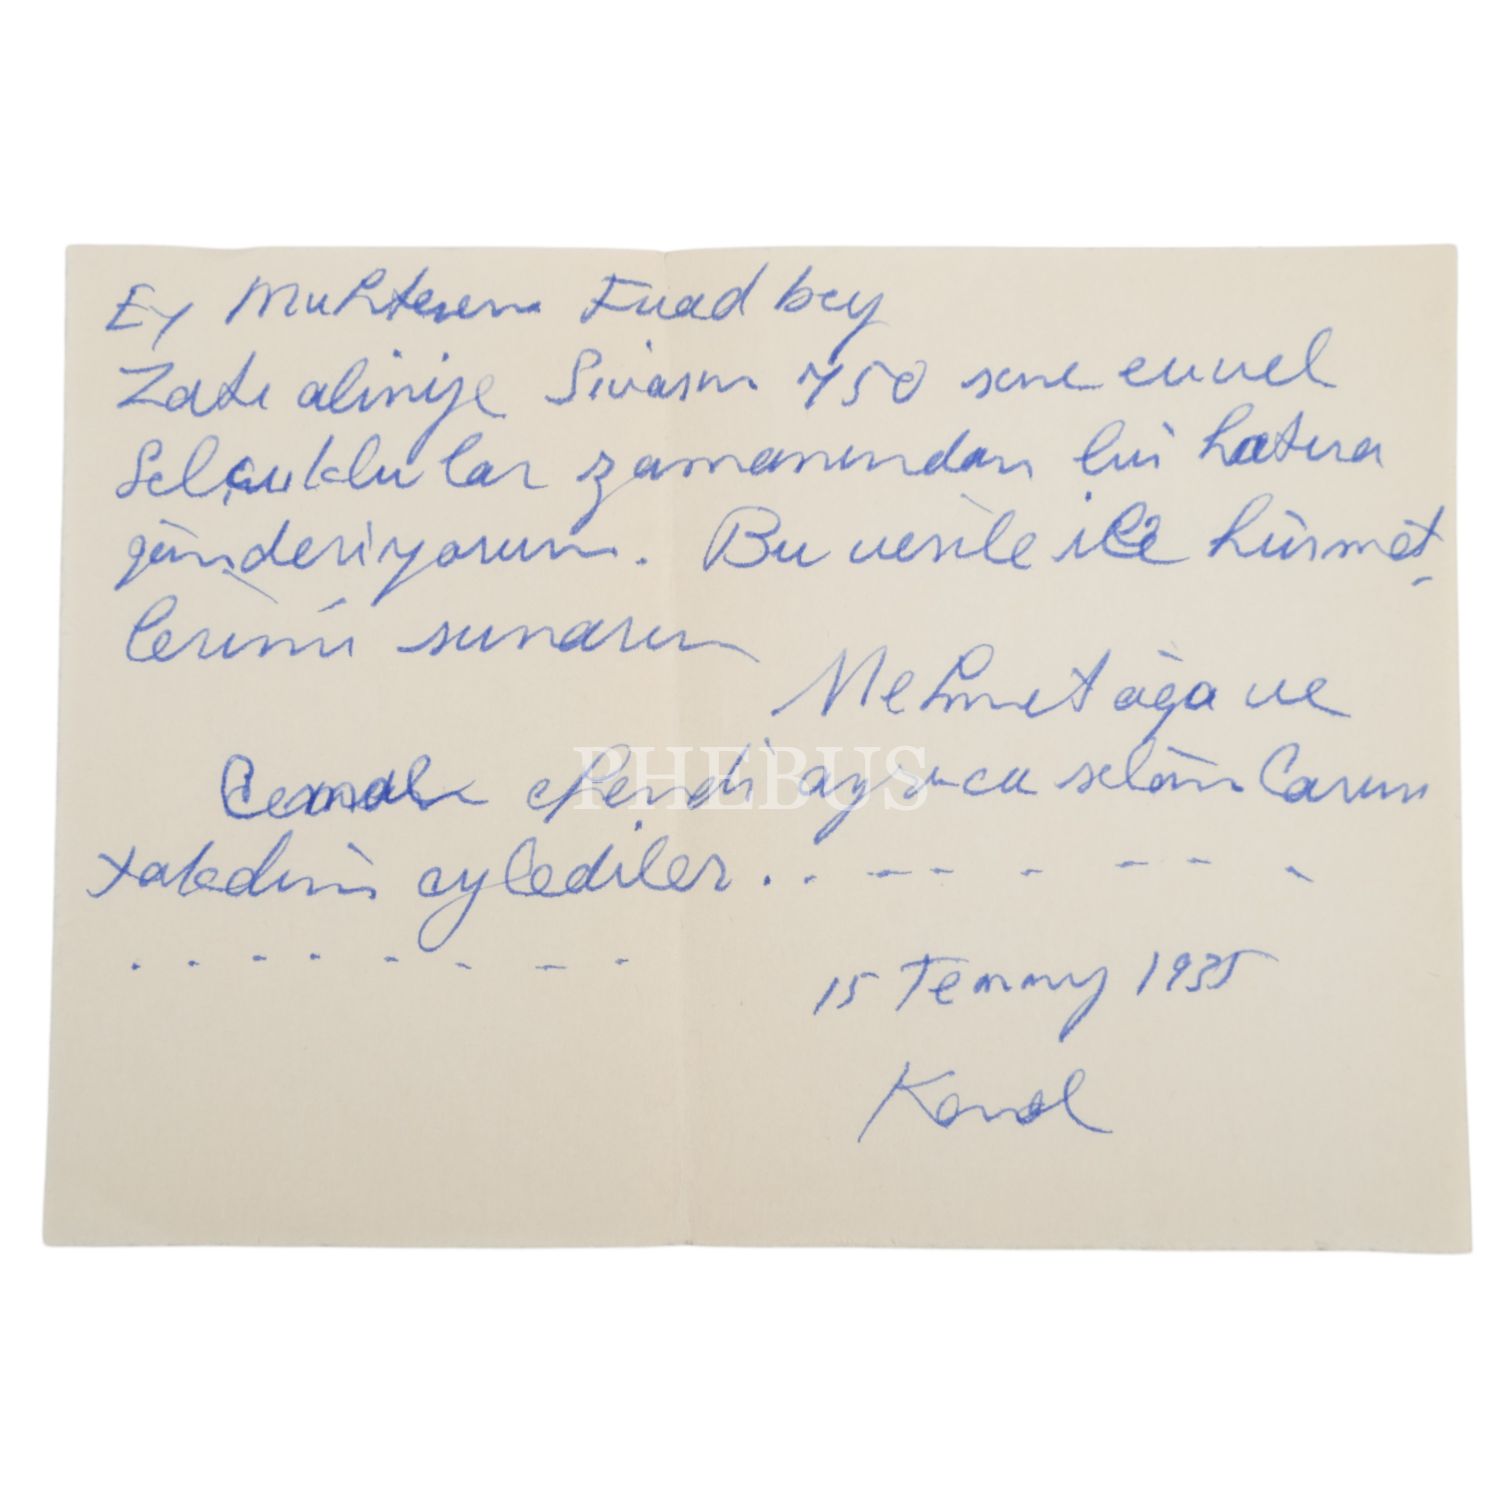 Ey Muhterem Fuad bey
Zatı alinize Sivasın 750 sene evvel
Selçuklular zamanından bir hatıra
gönderiyorum. Bu vesile ile hürmet-
lerimi sunarım
Mehmet ağa ve
Cemal efendi ayrıca selâmlarını
takdim eylediler. . - - - - - -
. . - . - - - - -
15 Temmuz 1935
Kemal
PHEBUS